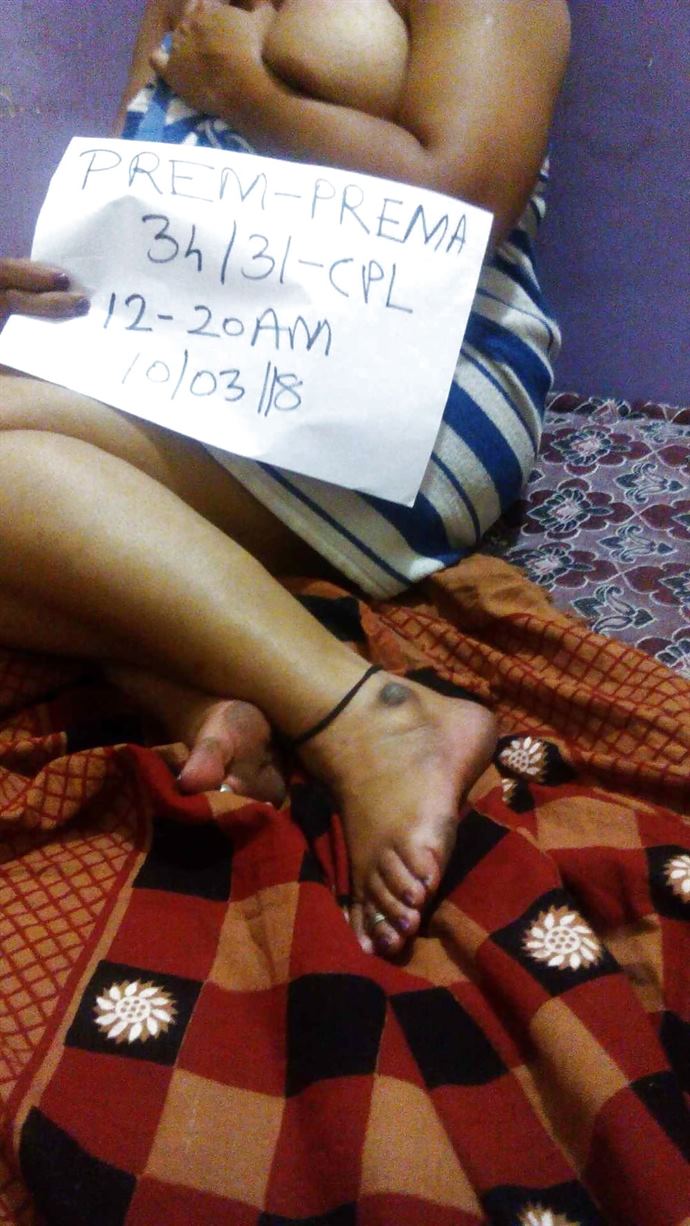 PREM-PREMA
34/31-CPL
12-20AM
10/03/18